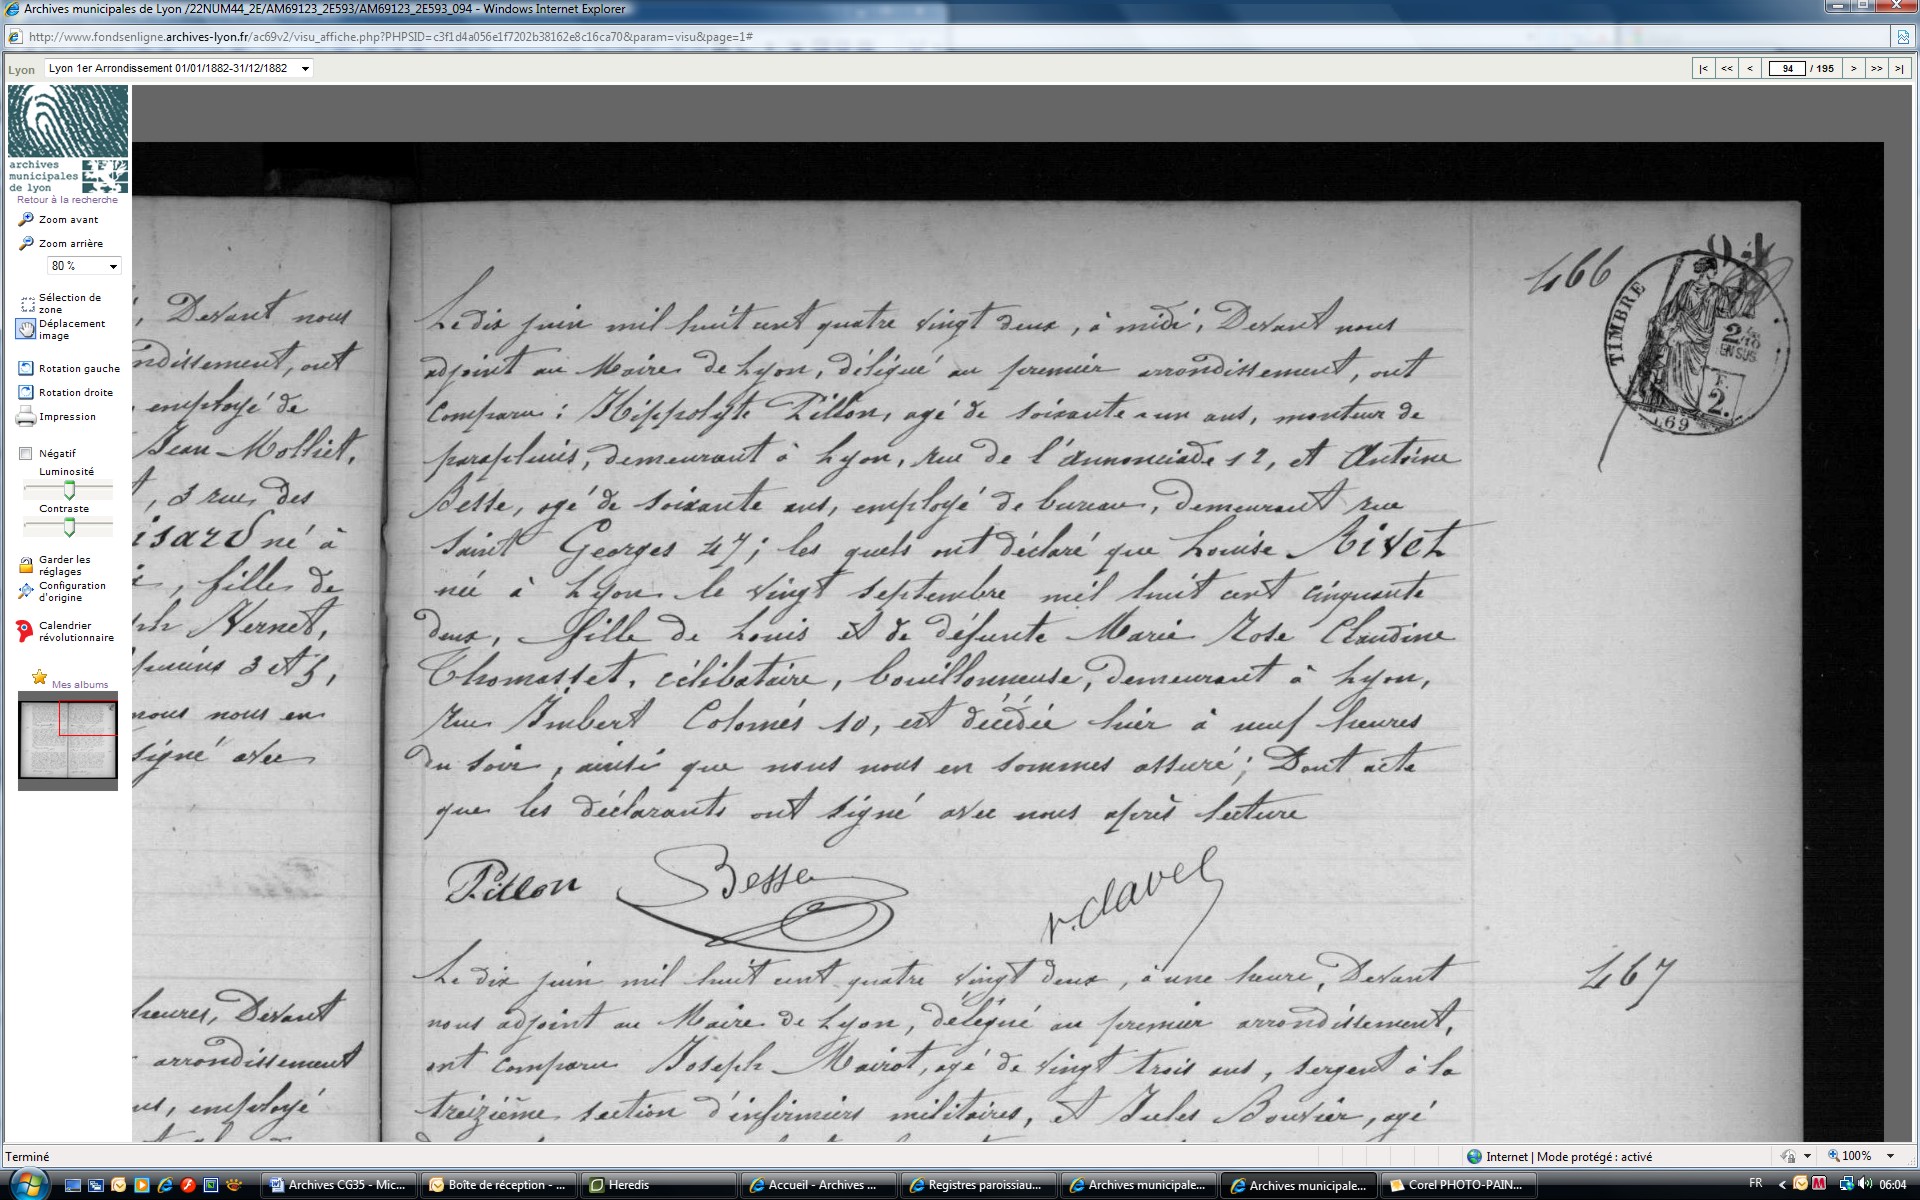 Archives municipales de Lyon /22NUM44_2E/AM69123_2E593/AM69123_2E593_094 - Windows Internet Explorer
http://www.fondsenligne.archives-lyon.fr/ac69v2/visu_affiche.php?PHPSID=c3f1d4a056e1f7202b38162e8c16ca70&param=visu&page=1#
Lyon Lyon 1er Arrondissement 01/01/1882-31/12/1882 |< << < 94 / 195 > >> >|
archives
municipales
de lyon
Retour à la recherche
Zoom avant
Zoom arrière
80 %
Sélection de
zone
Déplacement
image
Rotation gauche
Rotation droite
Impression
Négatif
Luminosité
Contraste
Garder les
réglages
Configuration
d'origine
Calendrier
révolutionnaire
Mes albums
, Devant nous
ndissement, ont
employé de
Jean Molliet,
, 3 rue des
isard né à
, fille de
ph Vernet,
pucins 3 et 5,
nous nous en
signé avec
heures, Devant
arrondissement
employé
466
TIMBRE
2/10
EN SUS
F.
2.
69
Le dix juin mil huit cent quatre vingt deux, à midi, Devant nous
adjoint au Maire de Lyon, délégué au premier arrondissement, ont
comparu : Hippolyte Pillon, agé de soixante-un ans, monteur de
parapluies, demeurant à Lyon, rue de l'annonciade 12, et Antoine
Besse, agé de soixante ans, employé de bureau, demeurant rue
Saint Georges 47; les quels ont déclaré que Louise Rivet
née à Lyon le vingt septembre mil huit cent cinquante
deux, fille de Louis et de défunte Marie Rose Claudine
Thomasset, célibataire, bouillonneuse, demeurant à Lyon,
rue Imbert Colomès 10, est décédée hier à neuf heures
du soir, ainsi que nous nous en sommes assuré; Dont acte
que les déclarants ont signé avec nous après lecture
Pillon Besse Clavel
467
Le dix juin mil huit cent quatre vingt deux, à une heure, Devant
nous adjoint au Maire de Lyon, délégué au premier arrondissement,
ont comparu Joseph Mairot, agé de vingt trois ans, sergent à la
treizième section d'infirmiers militaires, et Jules Bouvier, agé
Terminé Internet | Mode protégé : activé 100%
Archives CG35 - Mic... Boîte de réception - ... Heredis Accueil - Archives ... Registres paroissiau... Archives municipale... Archives municipale... Corel PHOTO-PAIN... FR 06:04